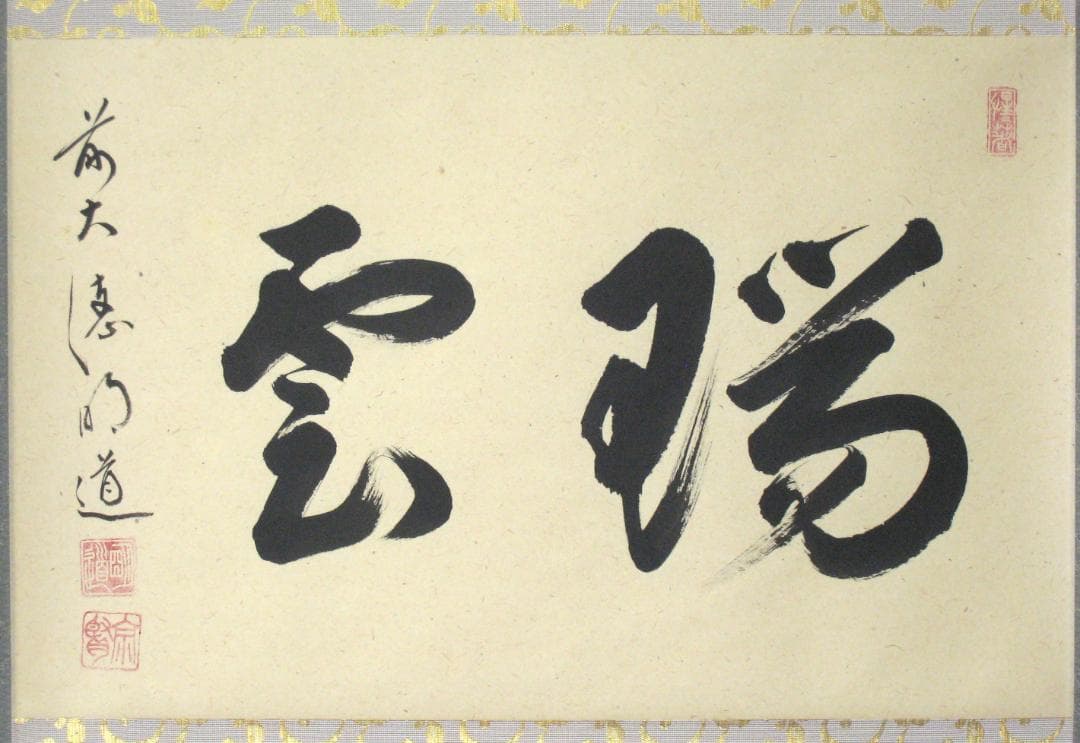 瑞雲
前大德明道